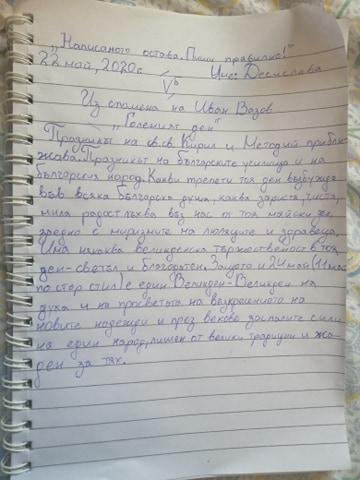 „Написаното остава. Пиши правилно!"
22 май, 2020г.
Vб
Име: Десислава
Из спомена на Иван Вазов
„Големият ден"
Празникът на св.св. Кирил и Методий прибли-
жава. Празникът на българските училища и на
българския народ. Какви трепети тоя ден възбужда
във всяка българска душа, каква зариста, чиста,
мила радост лъхва въз нас от тоя майски
заедно с миризните на люляците и здравеца.
Има някаква великденска тържественост в тоя
ден-светъл и благодатен. Защото и 24 май (11 май
по стар стил) е един Великден-Великден на
духа и на просветата на възкръсението на
новите надежди и през векове заспалите сили
на един народ, лишен от велики традиции и жа-
ден за тях.